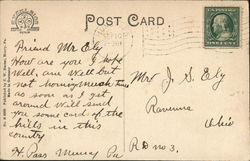 POST CARD
Friend Mr Ely
How are you I hope
well, am well but
not homeymuch time
as soon as I get
around will send
you some card of the
hills in this
country
H. Pass Muncy Pa
Mr J. S. Ely
Ravenna
Ohio
RD no 3,